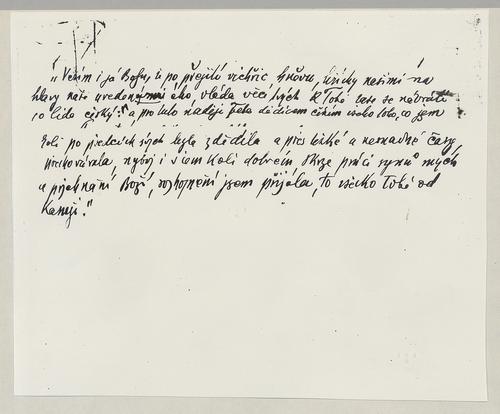 "Věřím i já Bohu, že po přejití vichřic hněvu, hříchy našimi na
hlavy naše uvedeného vláda věcí tvých k Tobě zase se navrátí
ó lide český: a pro tuto naději Tebe dědicem činím všeho toho, co jsem
koli po předcích svých byla zdědila a přes těžké a nesnadné časy
přechovávala, nýbrž i v čem koli dobrém skrze práci synů mých
a požehnání Boží, rozhojnění jsem přijala, to všecko Tobě od
kazuji."